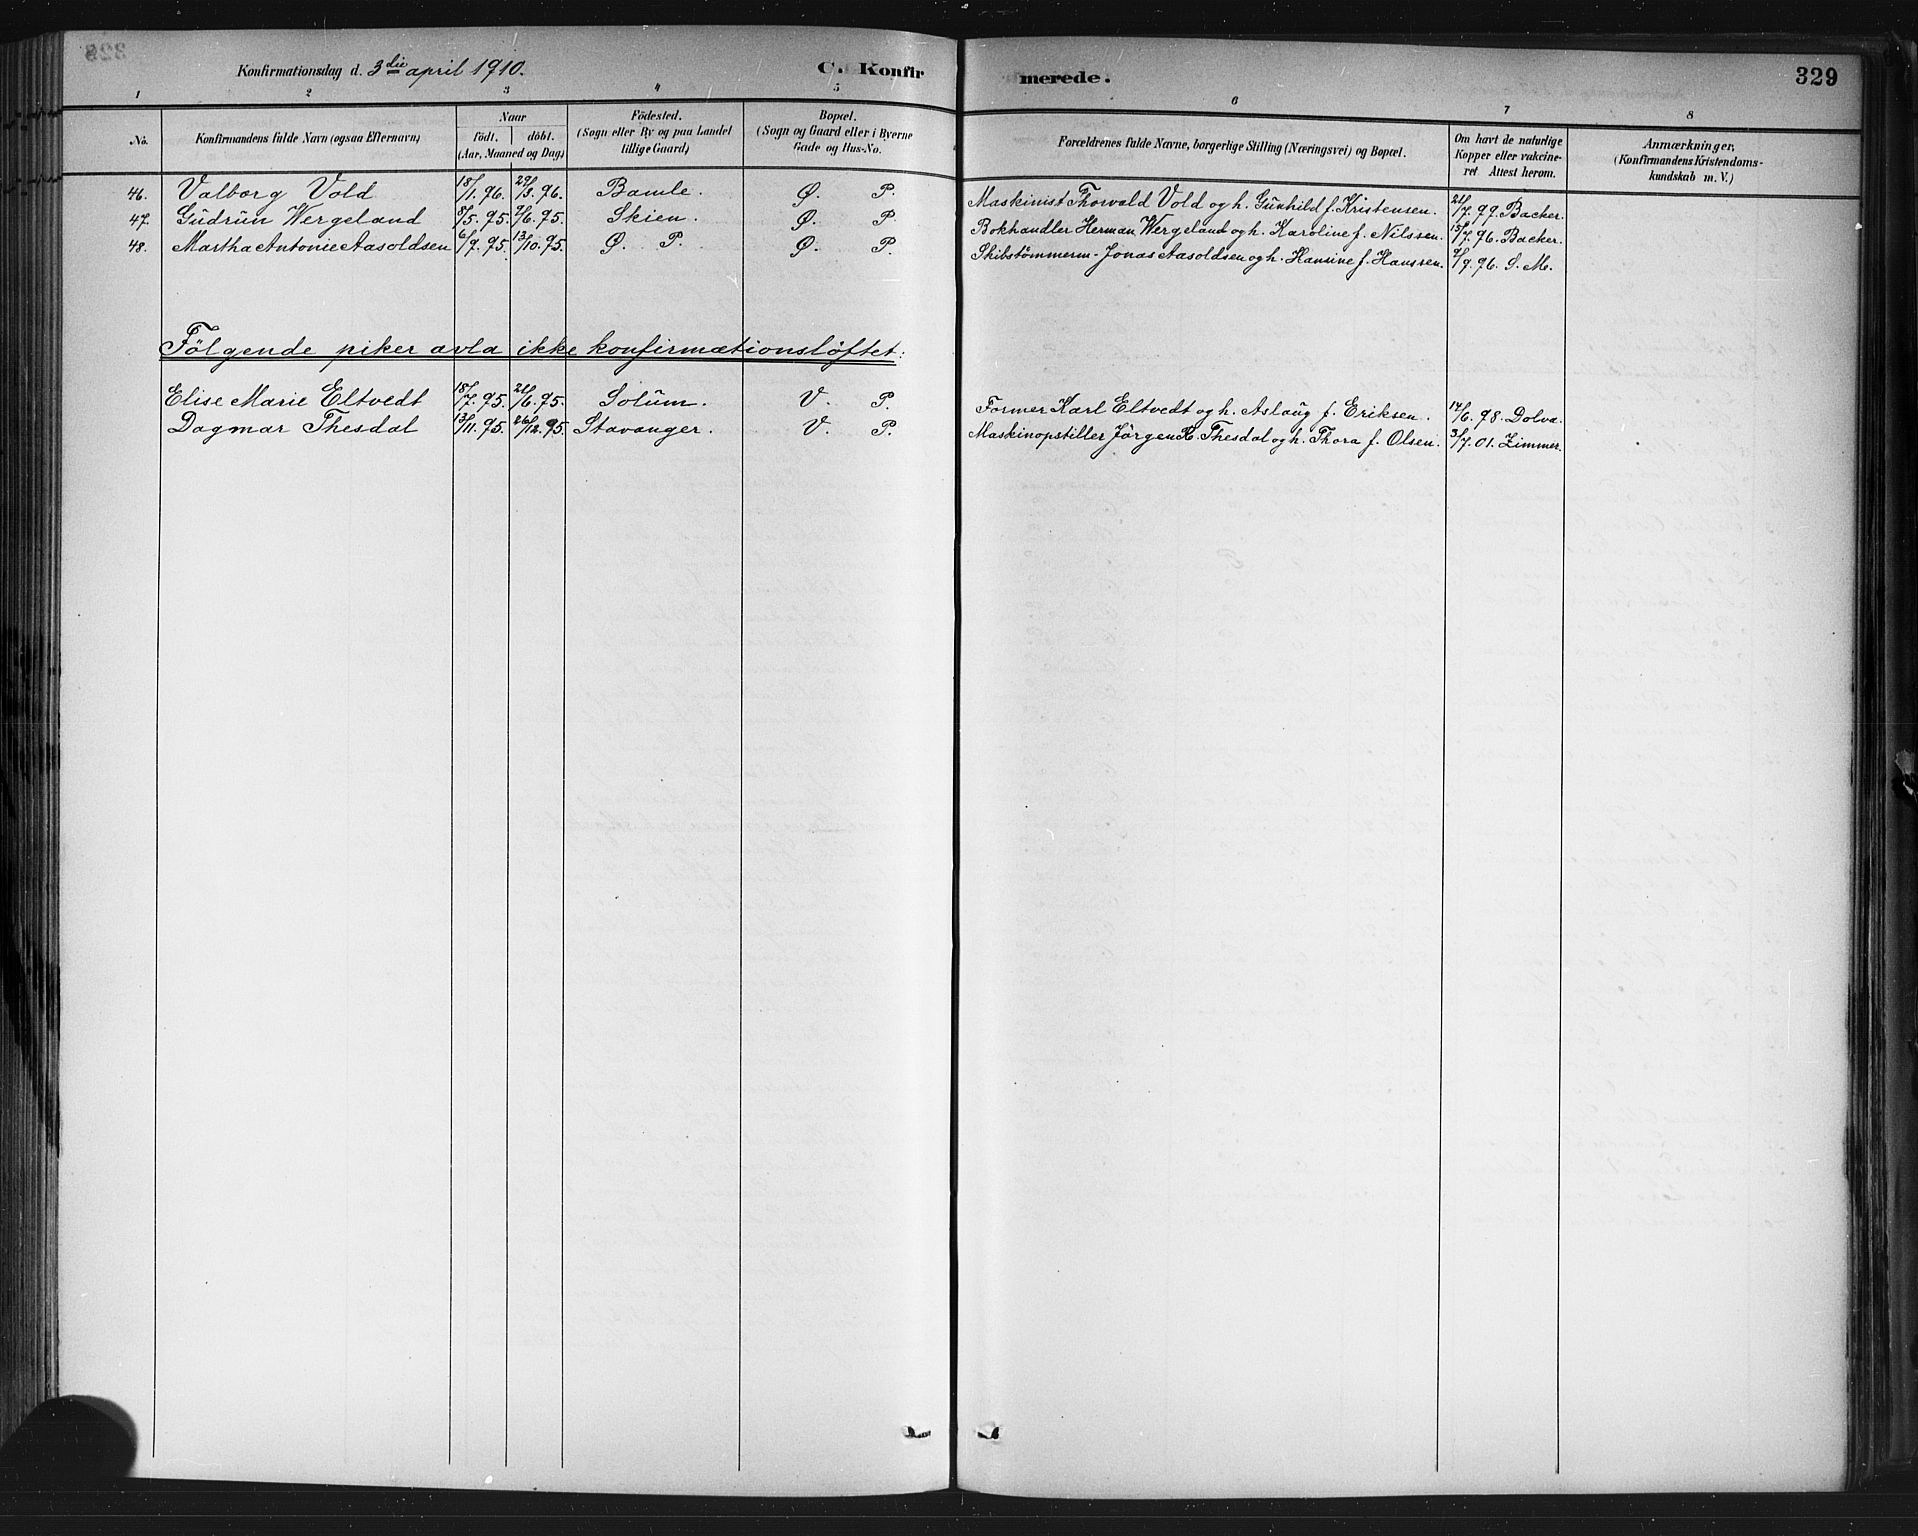 Konfirmationsdag d. 3die april 1910. C. Konfirmerede. 329
1 2 3 4 5 6 7 8
No. Konfirmandens fulde Navn (ogsaa Efternavn) Naar födt. döbt. (Aar, Maaned og Dag) Födested. (Sogn eller By og paa Landet tillige Gaard) Bopæl. (Sogn og Gaard eller i Byerne Gade og Hus-No. Forældrenes fulde Navne, borgerlige Stilling (Næringsvei) og Bopæl. Om havt de naturlige Kopper eller vakcineret Attest herom. Anmærkninger, (Konfirmandens Kristendomskundskab m. V.)
46. Valborg Vold 18/1. 96. 29/3. 96. Bamle. Ø. P. Maskinist Thorvald Vold og h. Gunhild f. Kristensen. 21/7. 99. Backer.
47. Gudrun Wergeland 8/5. 95. 9/6. 95. Skien. Ø. P. Bokhandler Herman Wergeland og h. Karoline f. Nilssen. 15/7. 96. Backer.
48. Martha Antonie Aasoldsen 6/9. 95. 13/10. 95. Ø. P. Ø. P. Skibstömmerm- Jonas Aasoldsen og h. Hansine f. Hanssen. 9/9. 96. S. M.
Fölgende piker avla ikke konfirmationslöftet:
Elise Marie Eltvedt 18/7. 95. 21/6. 95. Solum. V. P. Former Karl Eltvedt og h. Aslaug f. Eriksen. 14/6. 98. Dolva.
Dagmar Thesdal 13/11. 95. 26/12. 95. Stavanger. V. P. Maskinopstiller Jörgen R. Thesdal og h. Thora f. Olsen. 3/7. 01. Zimmer.